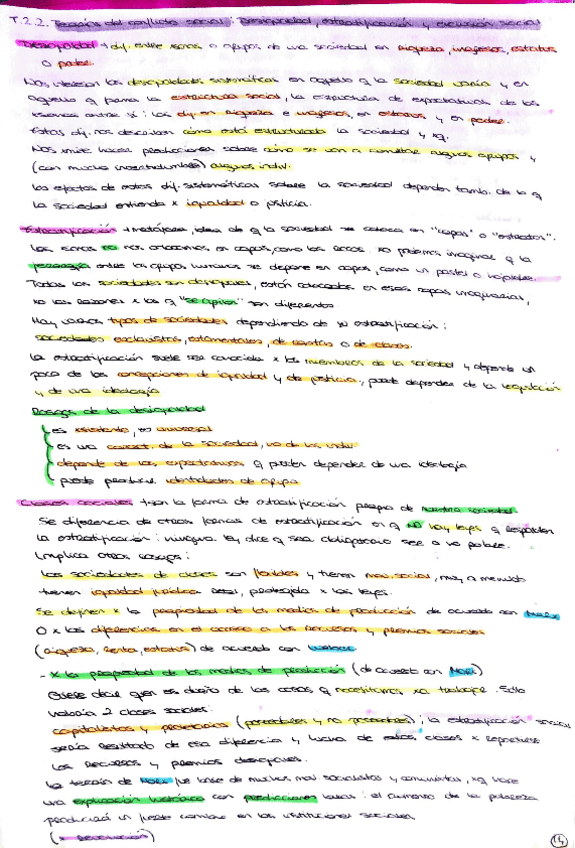 T.2.2. Teorías del conflicto social: Desigualdad, estratificación y exclusión social
Desigualdad → dif. entre personas o grupos de una sociedad en riqueza, ingresos, estatus
o poder.
Nos interesan las desigualdades sistemáticas en aquello q la sociedad varía y en
aquello q forma la estructura social, la estructura de expectativas de las
personas entre sí: las dif. en riqueza e ingresos, en estatus y en poder.
Estas dif. nos describen cómo está estructurada la sociedad y xq.
Nos permite hacer predicciones sobre cómo se van a comportar algunos grupos y
(con mucha incertidumbre) algunos indiv.
Los efectos de estas dif. sistemáticas sobre la sociedad dependen tamb. de lo q
la sociedad entienda x igualdad o justicia.
Estratificación → metáfora, idea de q la sociedad se coloca en "capas" o "estratos".
Las personas no nos ordenamos en capas, como las rocas. xo podemos imaginar q la
entre los grupos humanos se dispone en capas, como un pastel o hojaldre.
Todas las sociedades son desiguales, están colocadas en esas capas imaginarias,
xo las razones x las q "se apilan" son diferentes
Hay varios tipos de sociedades dependiendo de su estratificación:
sociedades esclavistas, estamentales, de castas o de clases.
La estratificación suele ser conocida x los miembros de la sociedad y depende un
poco de las concepciones de igualdad y de justicia, puede depender de la legislación
y de una ideología
Rasgos de la desigualdad
es persistente, es universal
es una caract. de la sociedad, no de los indiv.
depende de las expectativas q pueden depender de una ideología
puede producir identidades de grupo
Clases sociales → son la forma de estratificación propia de nuestra sociedad
Se diferencia de otras formas de estratificación en q no hay leyes q respalden
la estratificación: ninguna ley dice q sea obligatorio ser o no pobre.
Implica otros rasgos:
Las sociedades de clases son flexibles y tienen mov. social, muy a menudo
tienen igualdad jurídica total, protegida x las leyes.
Se definen x la propiedad de los medios de producción de acuerdo con Marx
O x las diferencias en el acceso a los recursos y premios sociales
(riqueza, renta, estatus) de acuerdo con Weber
- x la propiedad de los medios de producción (de acuerdo con Marx)
Quiere decir quien es dueño de las cosas q necesitamos xa trabajar. Sólo
habría 2 clases sociales:
capitalistas y proletarios (poseedores y no poseedores); la estratificación social
sería resultado de esa diferencia y lucha de estas clases x repartirse
los recursos y premios desiguales.
La teoría de Marx fue base de muchos mov. socialistas y comunistas, xq hace
una explicación histórica con predicciones: el aumento de la pobreza
producirá un fuerte cambio en las instituciones sociales
(x revolución)